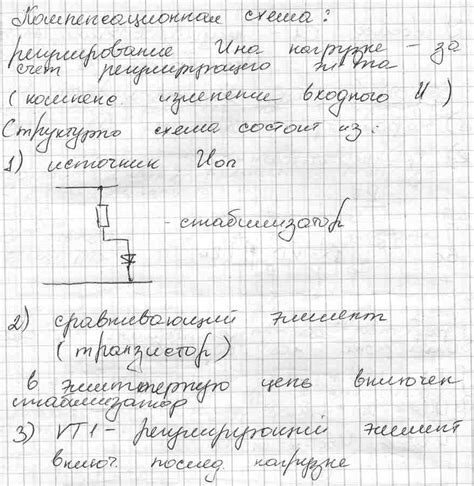 Компенсационная схема:
регулирование U на нагрузке – за
счет регулирующего эл-та
(компенс. изменение входного U)
Структурно схема состоит из:
1) источник Uоп
– стабилизатор
2) сравнивающий элемент
(транзистор)
в эмиттерную цепь включен
стабилизатор
3) VT1 – регулирующий элемент
включ. послед. нагрузке